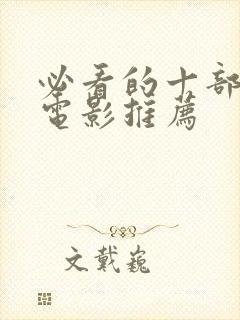 必看的十部
电影推荐
文戴巍